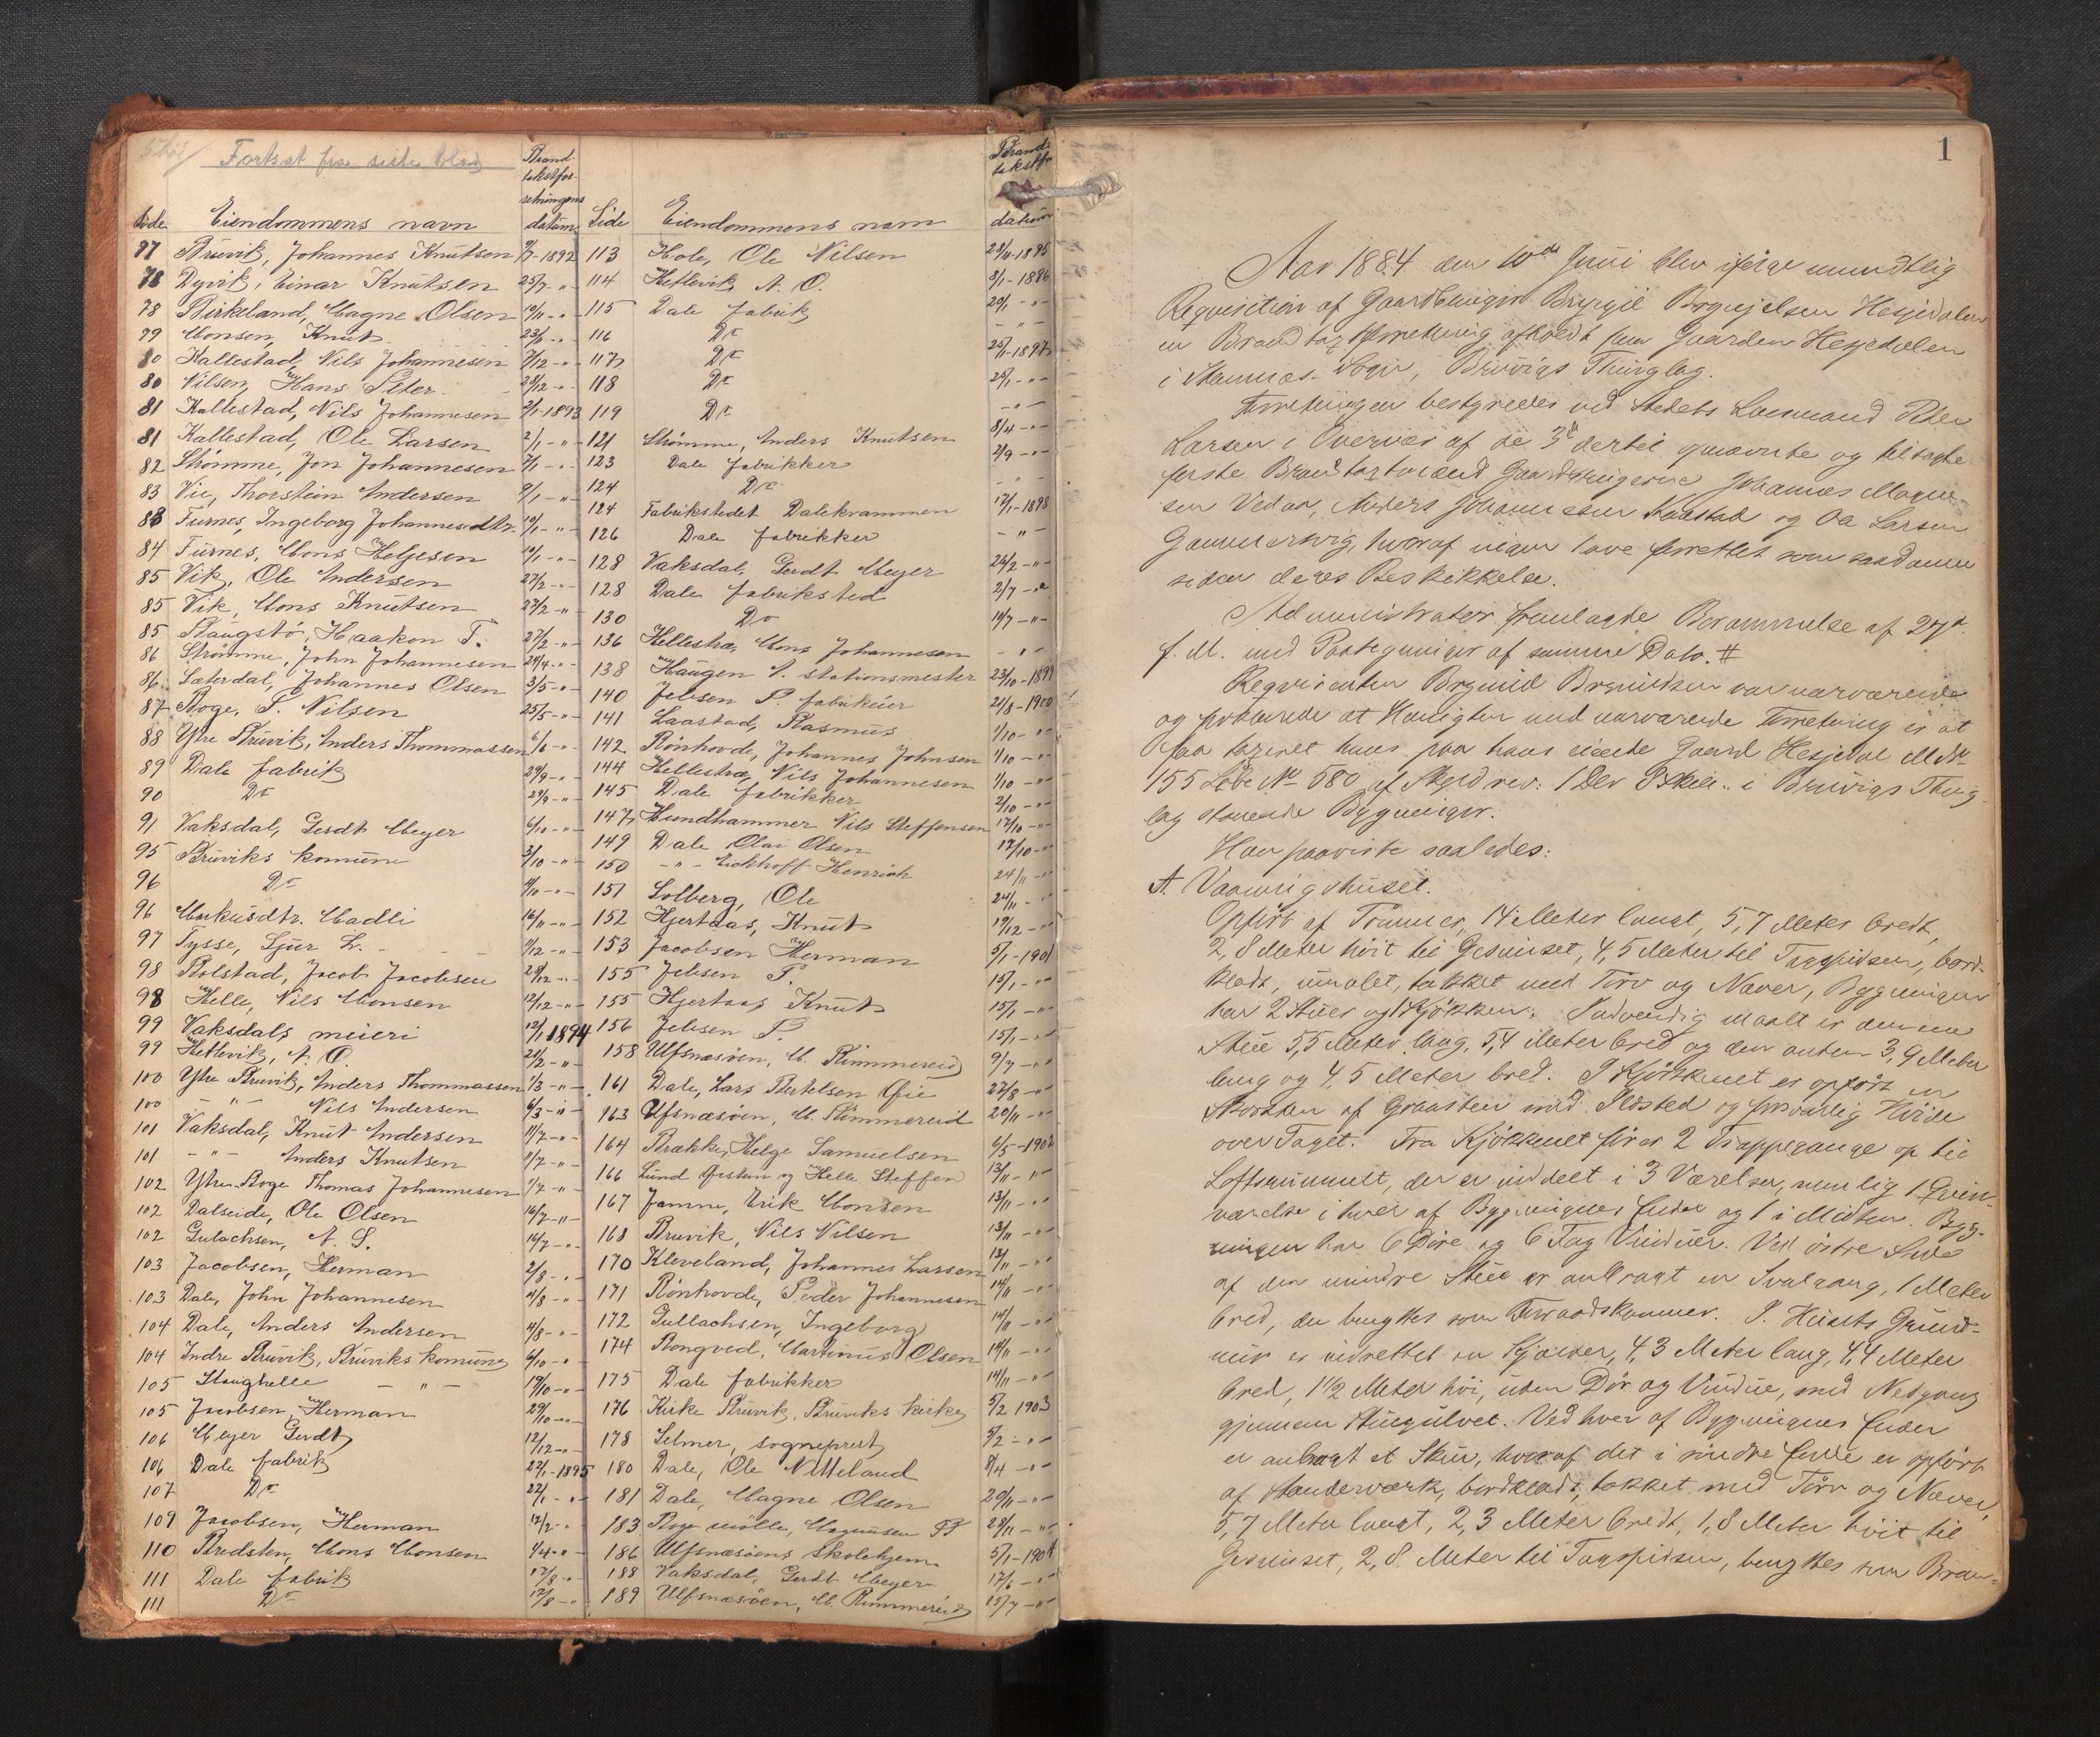 Fortsat fra siste blad
Side Eiendommens navn Brand-takstfor-retningens datum
77 Bruvik, Johannes Knutsen 9/7-1892
78 Dyvik, Einar Knutsen 25/7 - " -
78 Birkeland, Magne Olsen 10/11 - " -
79 Monsen, Knut 23/6 - " -
80 Kallestad, Nils Johannesen 7/12 - " -
80 Nilsen, Hans Peter 28/12 - " -
81 Kallestad, Nils Johannesen 2/1-1893
81 Kallestad, Ole Larsen 2/1 - " -
82 Strømme, Jon Johannesen 7/1 - " -
83 Vie, Thorstein Andersen 9/1 - " -
83 Furnes, Ingeborg Johannesdtr. 10/1 - " -
84 Furnes, Mons Helgesen 10/1 - " -
85 Vik, Ole Andersen 27/2 - " -
85 Vik, Mons Knutsen 27/2 - " -
85 Baugstø, Haakon T. 27/2 - " -
86 Strømme, John Johannesen 24/4 - " -
86 Sæterdal, Johannes Olsen 3/5 - " -
87 Boge, P. Nilsen 25/5 - " -
88 Ytre Bruvik, Anders Thommassen 6/6 - " -
89 Dale fabrik 29/9 - " -
90 Do 29/9 - " -
91 Vaksdal, Gerdt Meyer 6/10 - " -
95 Bruviks komune 3/10 - " -
96 Do 4/10 - " -
96 Markusdtr. Madli 16/11 - " -
97 Tysse, Sjur L. 7/12 - " -
98 Bolstad, Jacob Jacobsen 28/12 - " -
98 Helle, Nils Monsen 12/12 - " -
99 Vaksdals meieri 12/1 1894
99 Hetlevik, A. O. 21/2 - " -
100 Ytre Bruvik, Anders Thommassen 1/3 - " -
100 - " - Nils Andersen 6/3 - " -
101 Vaksdal, Knut Andersen 11/7 - " -
101 - " - Anders Knutsen 11/7 - " -
102 Ytre Boge Thomas Johannesen 7/7 - " -
102 Dalseide, Ole Olsen 16/7 - " -
102 Gulachsen, A. S. 16/7 - " -
103 Jacobsen, Herman 2/8 - " -
103 Dale, John Johannesen 4/8 - " -
104 Dale, Anders Andersen 4/8 - " -
104 Indre Bruvik, Bruviks komune 6/10 - " -
105 Stanghelle - " - 19/10 - " -
105 Jacobsen, Herman 29/10 - " -
106 Meyer Gerdt 12/12 - " -
106 Dale fabrik 22/1-1895
107 Do 22/1 - " -
109 Jacobsen, Herman 12/2 - " -
110 Bredsten, Mons Monsen 1/4 - " -
111 Dale fabrik 12/8 - " -
111 Do 12/8 - " -
Side Eiendommens navn Brand-takstfor datum
113 Hole, Ole Nilsen 23/11-1895
114 Hetlevik A. O. 3/1-1896
115 Dale fabrik 20/1 - " -
116 Do - " -
117 Do 25/1-1897
118 Do 25/1 - " -
119 Do - " -
121 Strømme, Anders Knutsen 8/4 - " -
123 Dale fabrikker 2/9 - " -
124 Do - " -
124 Fabrikstedet Dalekvammen 17/1-1898
126 Dale fabrikker - " -
128 Vaksdal, Gerdt Meyer 26/2 - " -
128 Dale fabriksted 2/7 - " -
130 Do 19/7 - " -
136 Hellestræ, Mons Johannesen - " -
138 Haugen A. stationsmester 23/10-1899
140 Jebsen P. fabrikeier 21/8-1900
141 Laastad, Rasmus 1/10 - " -
142 Rönhovde, Johannes Johnsen 1/10 - " -
144 Hellestræ, Nils Johannesen 1/10 - " -
145 Dale fabrikker 2/10 - " -
147 Hundhammer Nils Steffensen 17/10 - " -
149 Dale Olai Olsen 17/10 - " -
150 - " - Eickhoff Henrich 24/11 - " -
151 Solberg, Ole 24/11 - " -
152 Hjertaas, Knut 19/12 - " -
153 Jacobsen Herman 5/1-1901
155 Jebsen P. 15/1 - " -
155 Hjertaas Knut 15/1 - " -
156 Jebsen P. 15/1 - " -
158 Ulfsnæsöen, M. Rimmereid 9/7 - " -
161 Dale, Lars Bertelsen Øie 27/8 - " -
163 Ulfsnæsöen, M. Rimmereid 20/11 - " -
164 Brække, Helge Samuelsen 6/5-1902
166 Lund Øistein og Helle Steffen 13/11 - " -
167 Jamne, Erik Monsen 13/11 - " -
168 Bruvik, Nils Nilsen 13/11 - " -
170 Kleveland, Johannes Larsen 13/11 - " -
171 Rönhovde, Peder Johannesen 14/11 - " -
172 Gullachsen, Ingeborg 14/11 - " -
174 Rongved, Martinus Olsen 14/11 - " -
175 Dale fabrikker 14/11 - " -
176 Kirke Bruvik, Bruviks kirke 5/2 1903
178 Selmer, sogneprest 5/2 - " -
180 Dale, Ole Nitteland 8/4 - " -
181 Dale, Magne Olsen 20/11 - " -
183 Boge mölle, Magnusen B 28/11 - " -
186 Ulfsnæsöens skolehjem 5/1-1904
188 Vaksdal, Gerdt Meyer 17/6 - " -
189 Ulfsnæsöen, M. Rimmereid 15/7 - " -
1
Aar 1884 den 10de Juni blev ifølge mundtlig
Reqvisition af Gaardbruger Brynjel Brynjelsen Hesjedalen
en Brandtaxtforretning afholdt paa Gaarden Hesjedalen
i Stamnæs Sogn, Bruvigs Thinglag.
Forretningen bestyredes ved Stedets Lensmand Peder
Larsen i Overvær af de 3de dertil opnævnte og tilsagte
første Brandtaxtmænd Gaardbrugerne Johannes Magne-
sen Vedaa, Anders Johannessen Kaastad og Ole Larsen
Gammersvig, hvoraf ingen have forrettet som saadanne
siden deres Beskikkelse.
Administrator fremlagde Berammelse af 27de
f. M. med Paategninger af samme Dato. #
Reqvirenten Brynild Brynildsen var nærværende
og forklarede at Hensigten med nærværende Forretning er at
faa taxeret hans paa hans eiende Gaard Hesjedal M.No
155 Løbe No 580 af Skyld rev: 1 Dlr 3 Skill. i Bruvigs Thing-
lag staaende Bygninger.
Han paaviste saaledes:
A. Vaaningshuset.
Opført af Tømmer, 14 Meter langt, 5,7 Meter bredt,
2,8 Meter høit til Gesimset, 4,5 Meter til Tagspidsen, bord-
klædt, umalet, tækket med Törv og Næver, Bygningen
har 2 Stuer og 1 Kjökken. Indvendig maalt er den ene
Stue 5,5 Meter lang, 5,4 Meter bred og den anden 3,9 Meter
lang og 4,5 Meter bred. I Kjøkkenet er opført en
Skorsten af Graasten med Ildsted og forsvarlig Høide
over Taget. Fra Kjökkenet fører 2 Trappegange op til
Loftsrummet, der er inddelt i 3 Værelser, nemlig 1
værelse i hver af Bygningens Ender og 1 i Midten. Byg-
ningen har 6 Döre og 6 Fag Vinduer. Ved østre Side
af den mindre Stue er anbragt en Svalgang, 1 Meter
bred, der benyttes som Forraadskammer. I Husets Grund-
mur er indrettet en Kjælder, 4,3 Meter lang, 4,4 Meter
bred, 1 1/2 Meter høi, uden Dør og Vindue, med Nedgang
gjennem Stuegulvet. Ved hver af Bygningens Ender
er anbragt et Skur, hvoraf det i søndre Ende er opført
af Stenderværk, bordklædt, tækket med Törv og Næver,
5,7 Meter langt, 2,3 Meter bredt, 1,8 Meter høit til
Gesimset, 2,8 Meter til Tagspidsen, benyttes som Bræn-